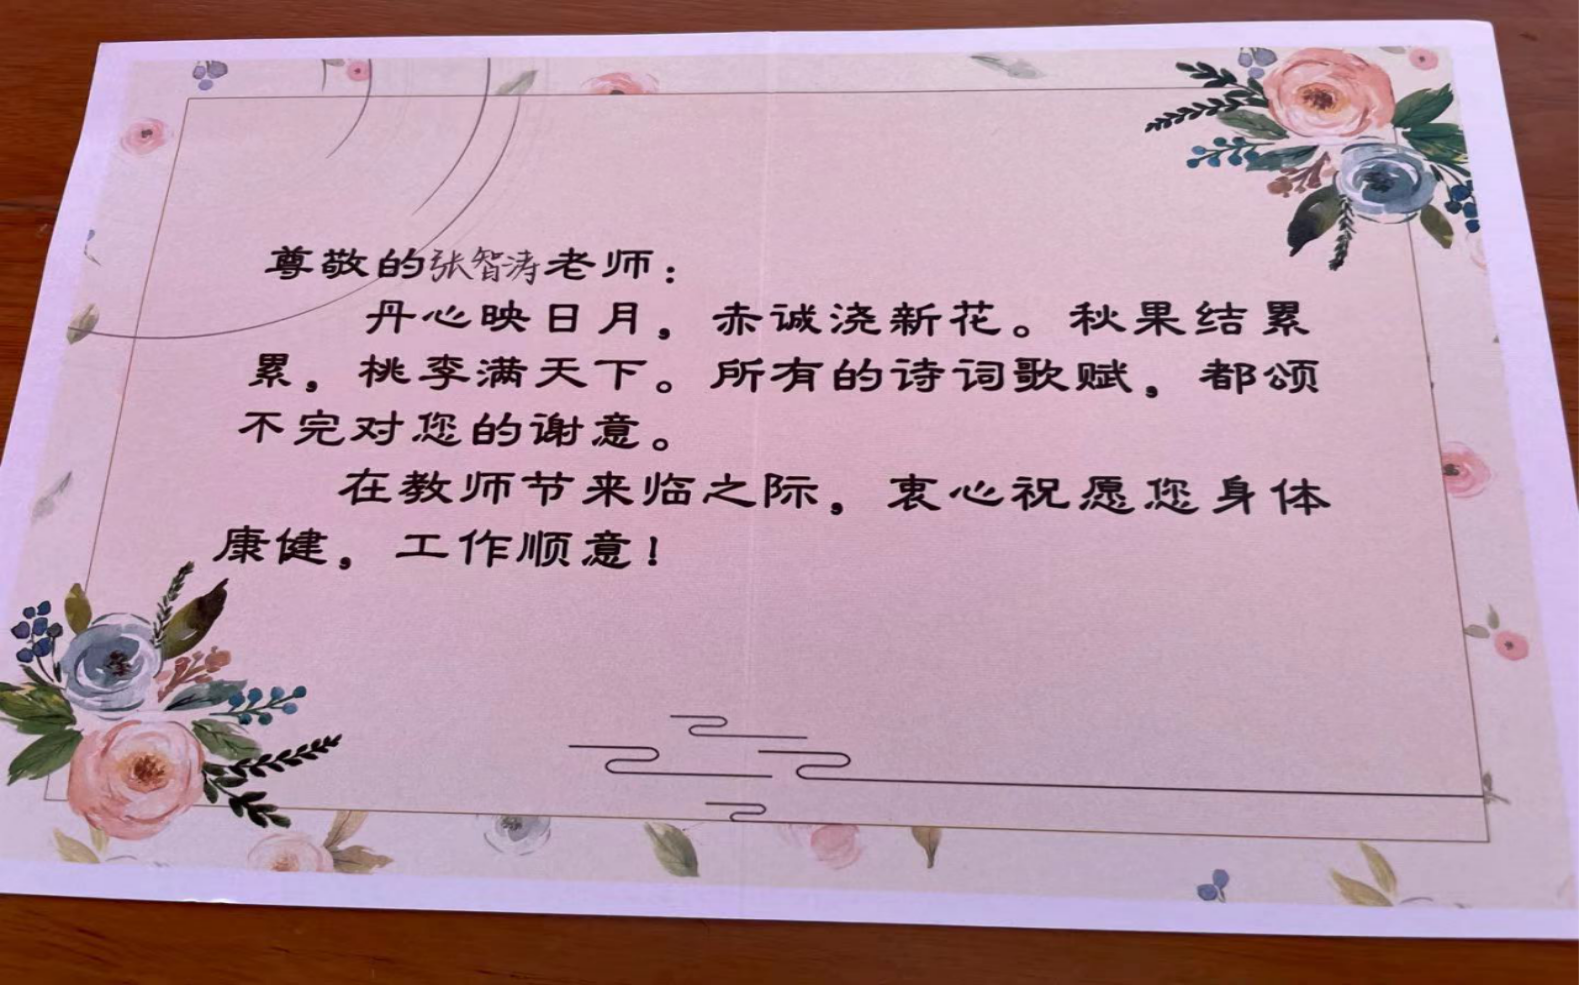 尊敬的张智涛老师：
丹心映日月，赤诚浇新花。秋果结累
累，桃李满天下。所有的诗词歌赋，都颂
不完对您的谢意。
在教师节来临之际，衷心祝愿您身体
康健，工作顺意！